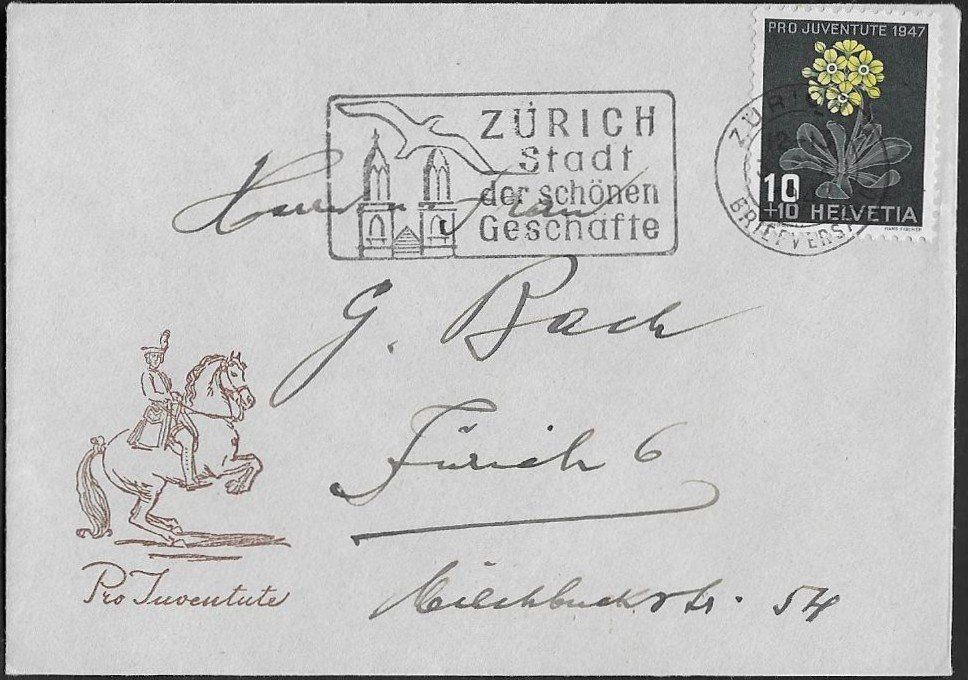 PRO JUVENTUTE 1947
10
+10 HELVETIA
HANS FISCHER
ZÜRICH
BRIEFVERSA
ZÜRICH
Stadt
der schönen
Geschäfte
Frau
G. Bach
Zürich 6
Milchbuckstr. 54
Pro Juventute